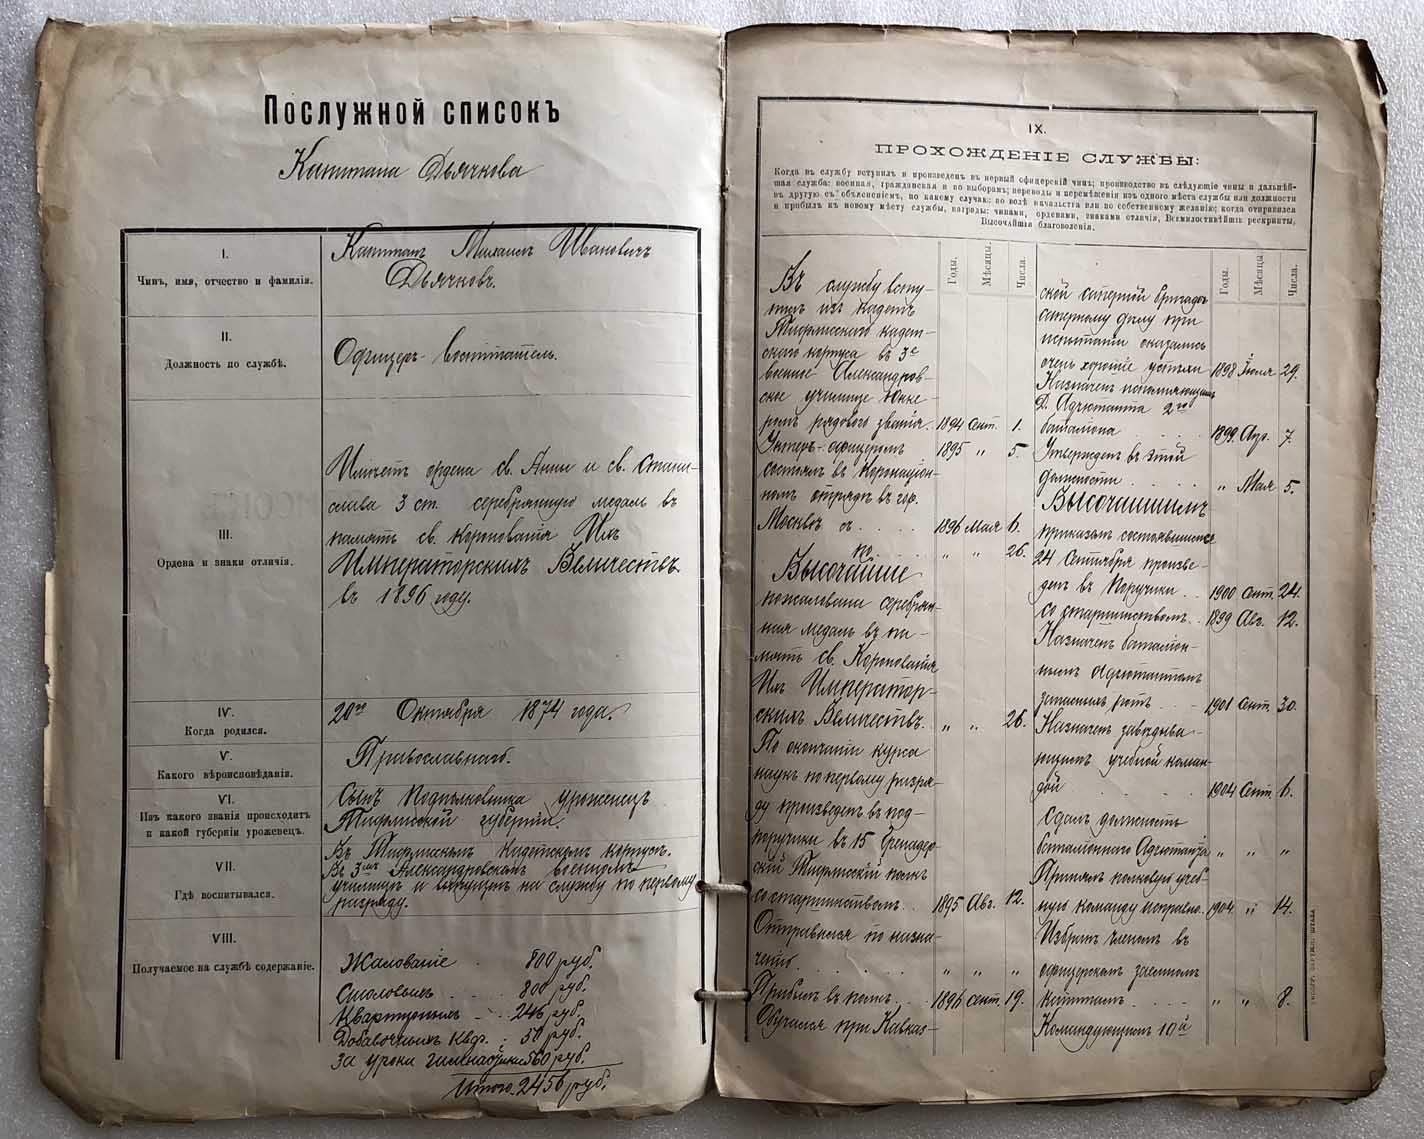 Послужной списокъ
Капитана Дьячкова
I.
Чинъ, имя, отчество и фамилія.
Капитанъ Михаилъ Ивановичъ
Дьячковъ.
II.
Должность по службѣ.
Офицеръ-воспитатель.
III.
Ордена и знаки отличія.
Имѣетъ ордена св. Анны и св. Стани-
слава 3 ст. серебрянную медаль въ
память св. Коронованія Ихъ
Императорскихъ Величествъ.
въ 1896 году.
IV.
Когда родился.
20го Октября 1874 года.
V.
Какого вѣроисповѣданія.
Православнаго.
VI.
Изъ какого званія происходитъ
и какой губерніи уроженецъ.
Сынъ Подполковника уроженецъ
Тифлисской губерніи.
VII.
Гдѣ воспитывался.
Въ Тифлисскомъ Кадетскомъ корпусѣ.
Въ 3емъ Александровскомъ военномъ
училищѣ и выпущенъ на службу по первому
разряду.
VIII.
Получаемое на службѣ содержаніе.
Жалованіе . 800 руб.
Столовыхъ . . . . 800 руб.
Квартирныхъ - . . 246 руб.
Добавочныхъ Квф. : 50 руб.
За уроки гимнастики 560 руб.
Итого - 2456 руб.
IX.
ПРОХОЖДЕНІЕ СЛУЖБЫ:
Когда въ службу вступилъ и произведенъ въ первый офицерскій чинъ; производство въ слѣдующіе чины и дальнѣй-
шая служба: военная, гражданская и по выборамъ; переводы и перемѣщенія изъ одного мѣста службы или должности
въ другую съ объясненіемъ, по какому случаю: по волѣ начальства или по собственному желанію; когда отправился
и прибылъ къ новому мѣсту службы, награды: чинами, орденами, знаками отличія, Всемилостивѣйшіе рескрипты,
Высочайшія благоволенія.
Годы. Мѣсяцы. Числа.
Въ службу всту-
пилъ изъ кадетъ
Тифлисскаго кадет-
скаго корпуса въ 3е
военное Александров-
ское училище Юнке-
ромъ рядового званія. 1894 Сент. 1.
Унтеръ-офицеромъ 1895 " 5.
Состоялъ въ Коронаціон-
номъ отрядѣ въ гор.
Москвѣ съ . . . . 1896 Мая 6.
по . . . . " " 26.
Высочайше
пожалована серебрян-
ная медаль въ па-
мять св. Коронованія
Ихъ Император-
скихъ Величествъ. " " 26.
По окончаніи курса
наукъ по первому разря-
ду произведенъ въ под-
поручики въ 15 Гренадер-
скій Тифлисскій полкъ
со старшинствомъ. . 1895 Авг. 12.
Отправился по назна-
ченію. . . . . . " " "
Прибылъ въ полкъ. . . 1896 Сент. 19.
Обучался при Кавказ-
Годы. Мѣсяцы. Числа.
ской сапёрной бригадѣ
сапёрному дѣлу при
испытаніи оказались
очень хорошіе успѣхи 1898 Іюля 29.
Назначенъ исполняющимъ
Д. Адъютанта 2го
баталіона . . . . 1899 Апр. 7.
Утвержденъ въ этой
должности . . . . . " Мая 5.
Высочайшимъ
приказомъ состоявшимся
24 Сентября произве-
денъ въ Поручики . . 1900 Сент. 24.
со старшинствомъ. . 1899 Авг. 12.
Назначенъ баталіон-
нымъ Адъютантомъ
1901 Сент. 30.
Назначенъ завѣдыва-
ющимъ учебной коман-
дой . . . . . 1904 Сент. 6.
Сдалъ должность
баталіоннаго Адъютанта " " "
Принялъ полковую учеб-
ную команду исправно. 1904. " 14.
Избранъ членомъ въ
офицерскомъ заемномъ
капиталѣ . . . . " " 8.
Командующимъ 10й